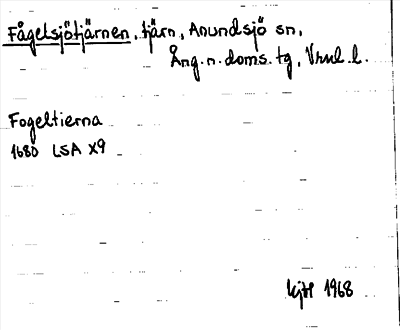 Fågelsjötjärnen, tjärn, Anundsjö sn,
Ång. n. doms. tg, Vnrl. l.
Fogeltierna
1680 LSA X9
1968